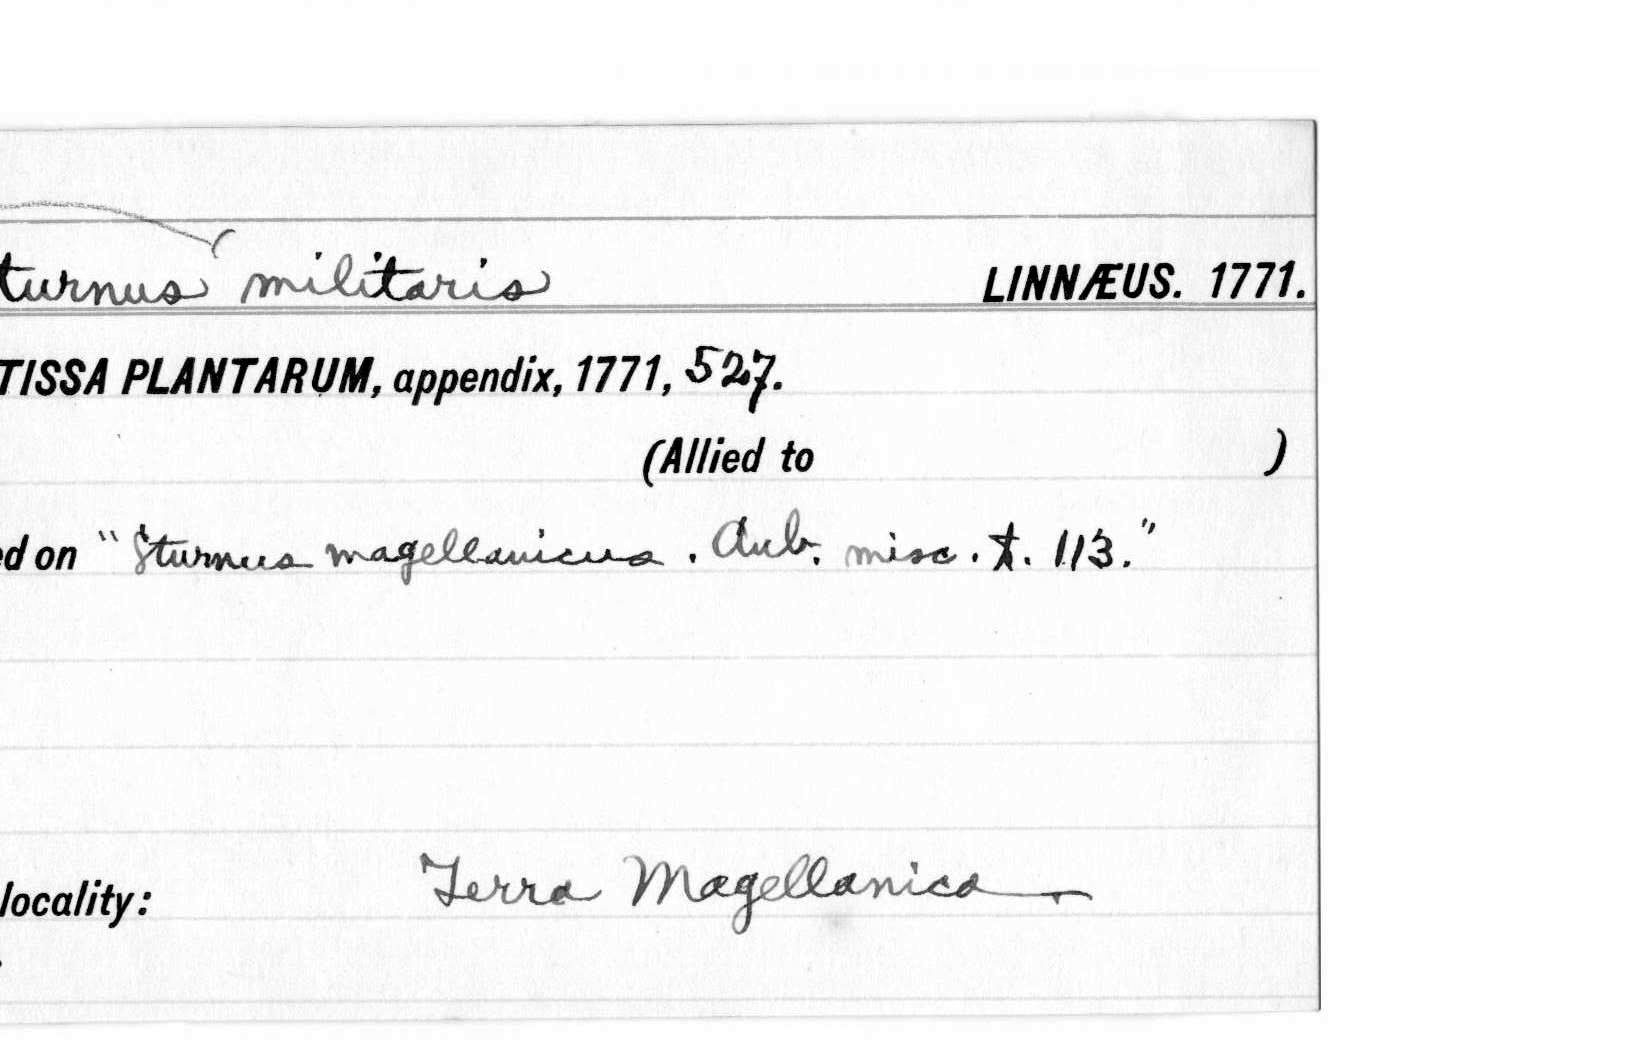 turnus militaris LINNÆUS. 1771.
TISSA PLANTARUM, appendix, 1771, 527.
(Allied to )
ed on "Sturnus magellanicus. Aub. misc. t. 113."
locality: Terra Magellanica